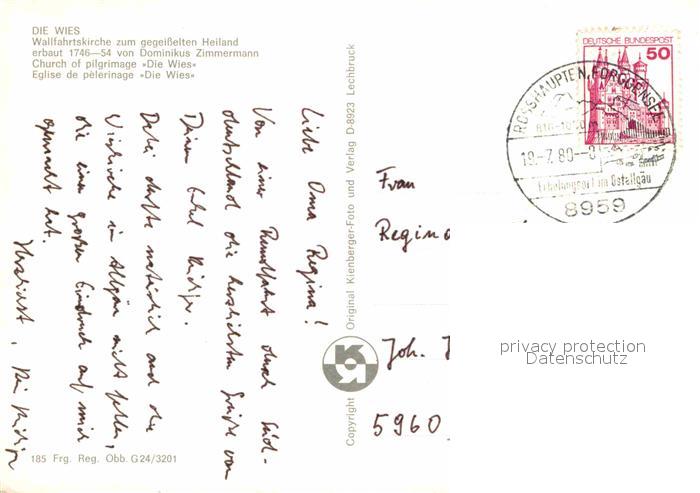 DIE WIES
Wallfahrtskirche zum gegeißelten Heiland
erbaut 1746—54 von Dominikus Zimmermann
Church of pilgrimage »Die Wies«
Eglise de pèlerinage »Die Wies«
Liebe Oma Regina!
Von einer Rundfahrt durch Süd-
deutschland die herzlichsten Grüße von
Deinem Enkel Rüdiger.
Dabei durfte natürlich auch die
Wieskirche im Allgäu nicht fehlen,
die einen großen Eindruck auf mich
gemacht hat.
Herzlichst, Dein Rüdiger
185 Frg. Reg. Obb. G24/3201
Copyright Original Kienberger-Foto und Verlag D-8923 Lechbruck
DEUTSCHE BUNDESPOST
50
ROSSHAUPTEN, FORGGENSEE
Erholungsort im Ostallgäu
8959
Frau
Regina
Joh.
5960
privacy protection
Datenschutz